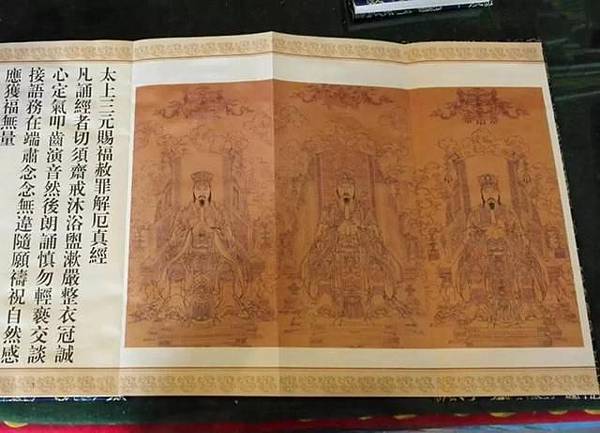 太上三元賜福赦罪解厄真經
凡誦經者切須齋戒沐浴盥漱嚴整衣冠誠
心定氣叩齒演音然後朗誦慎勿輕褻交談
接語務在端肅念念無違隨願禱祝自然感
應獲福無量